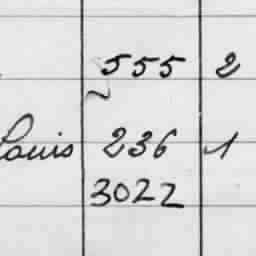 555 2
Louis 236 1
3022